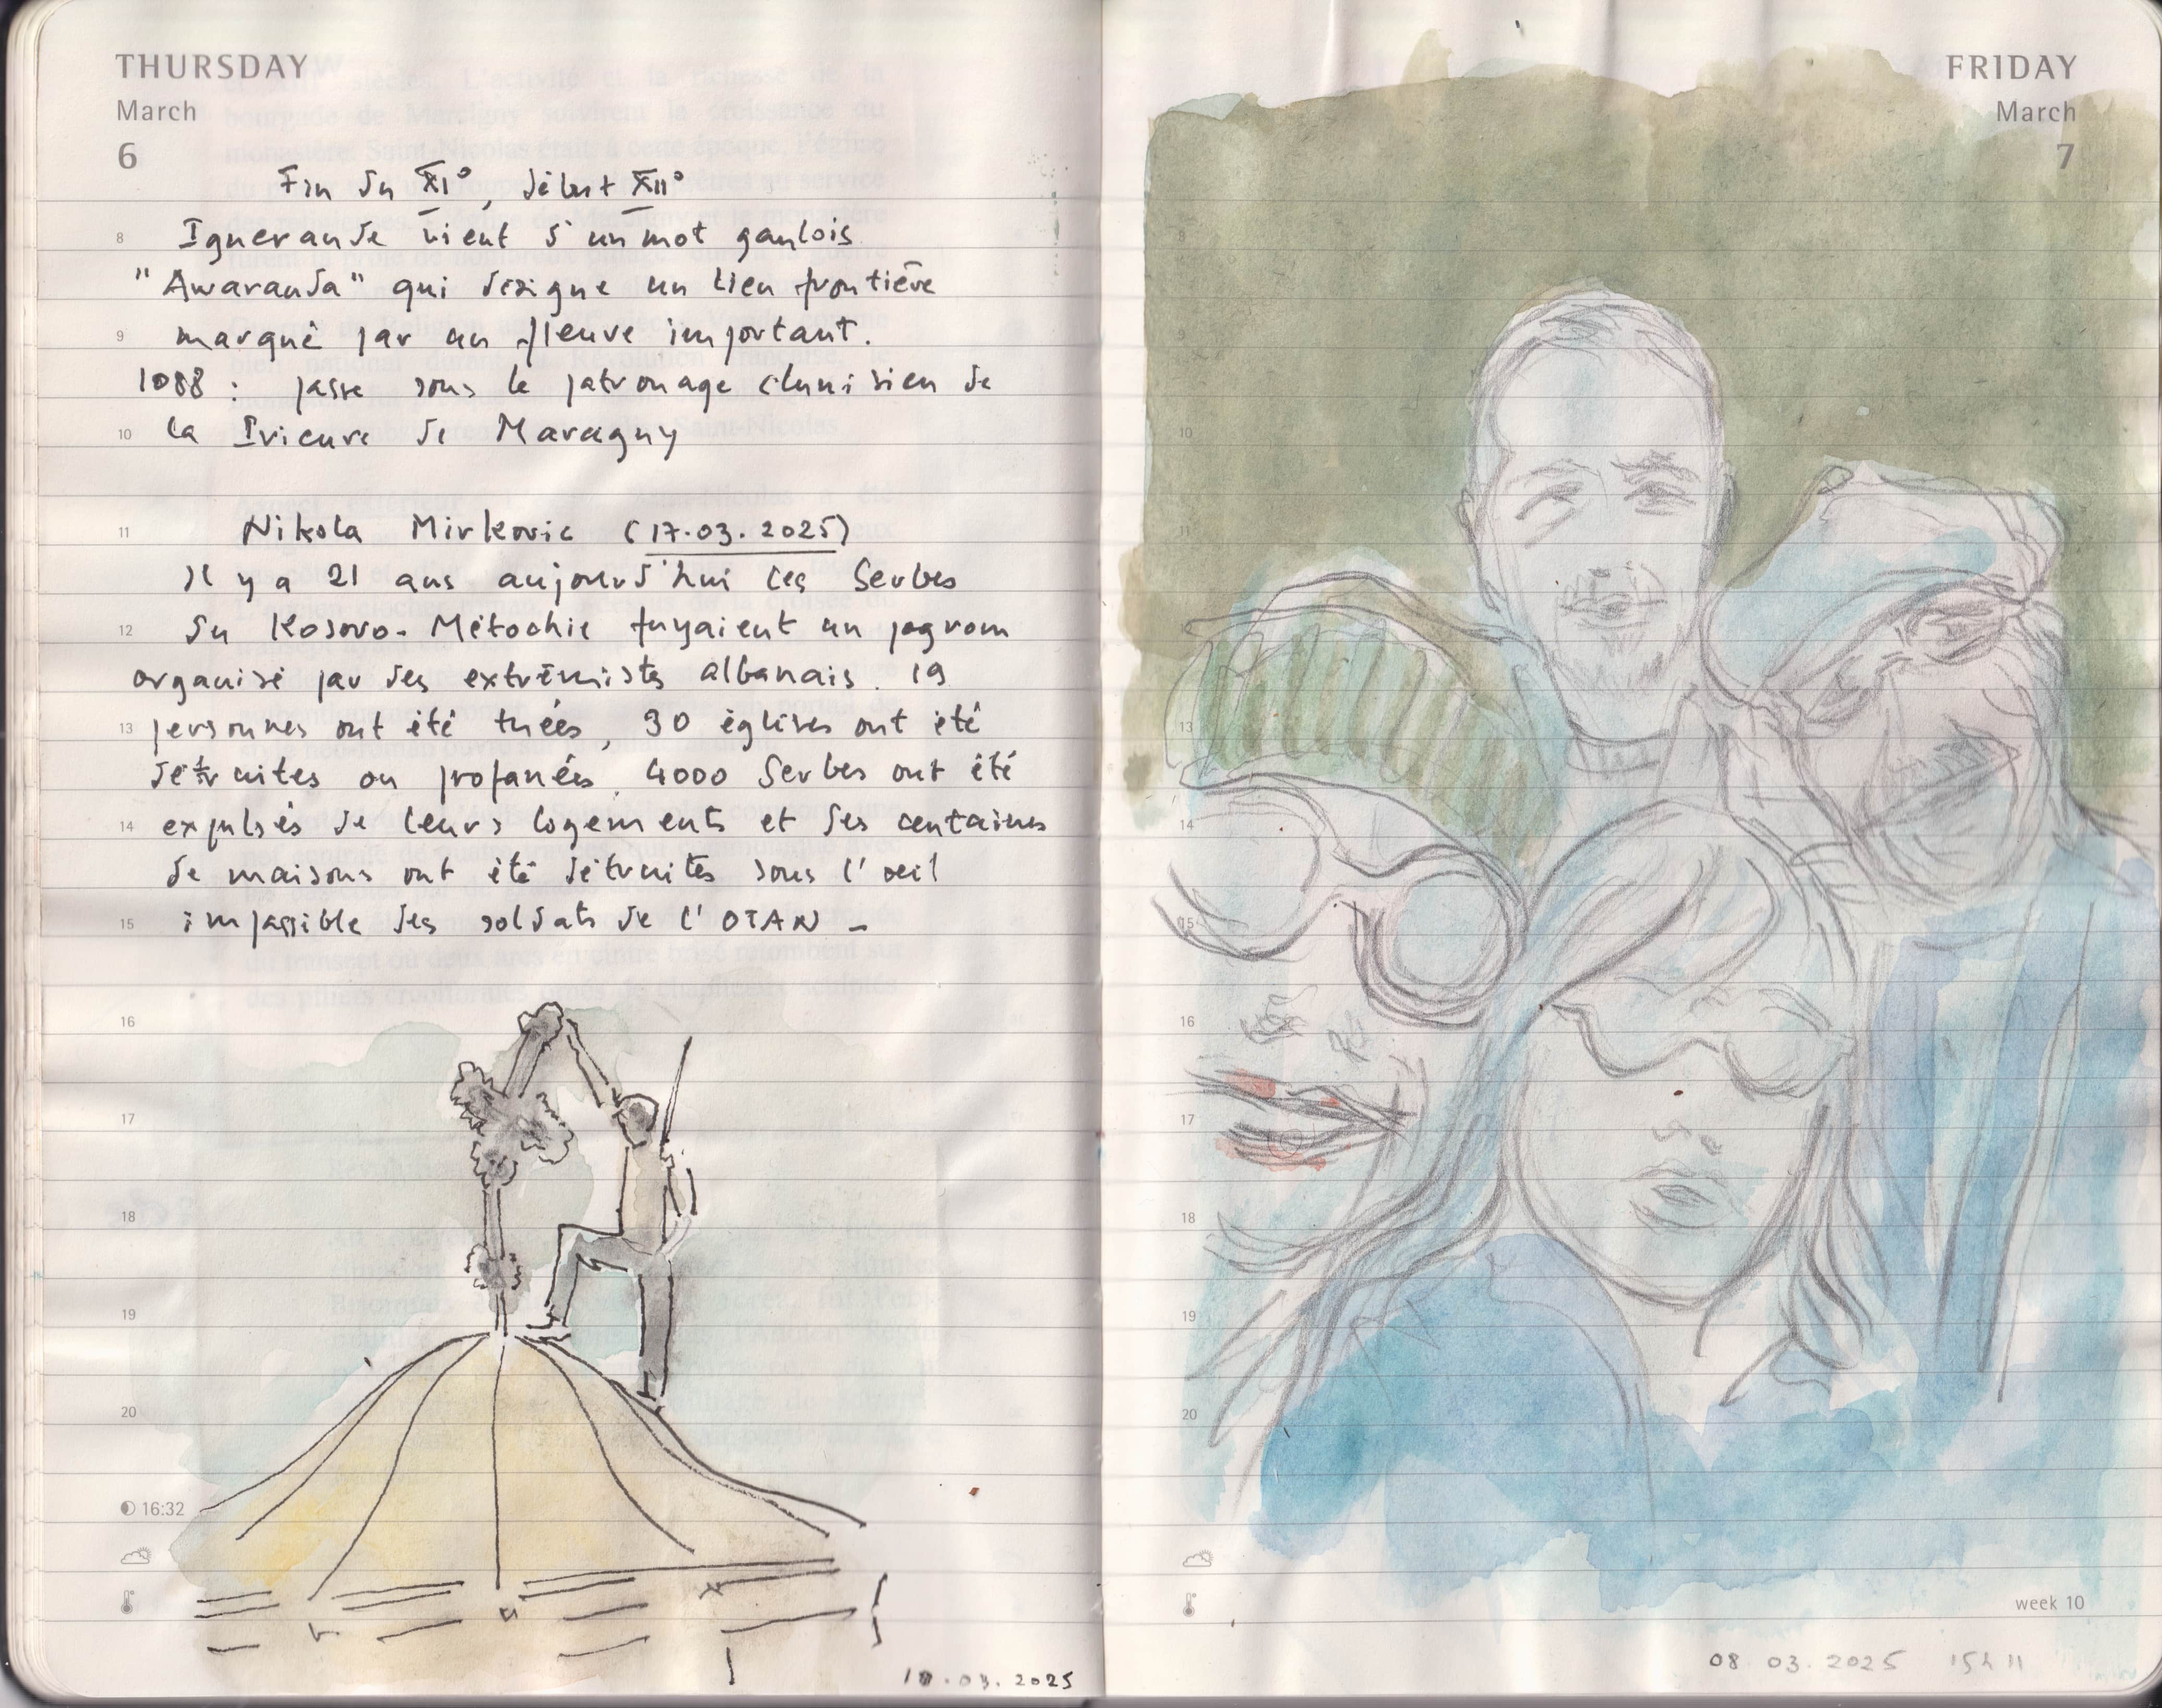 THURSDAY
March
6
Fin du XI°, début XII°
8 Iguerande vient d'un mot gaulois
"Awaranda" qui désigne un lieu frontière
9 marqué par un fleuve important.
1088 : passe sous le patronage clunisien de
10 la Prieure de Marcigny
11 Nikola Mirkovic (17.03.2025)
Il y a 21 ans aujourd'hui les Serbes
12 du Kosovo-Métochie fuyaient un pogrom
organisé par des extrémistes albanais. 19
13 personnes ont été tuées, 30 églises ont été
détruites ou profanées, 4000 Serbes ont été
14 expulsés de leurs logements et des centaines
de maisons ont été détruites sous l'oeil
15 impassible des soldats de l'OTAN -
16
17
18
19
20
16:32
03.2025
FRIDAY
March
7
8
9
10
11
12
13
14
15
16
17
18
19
20
week 10
08 03.2025 15h11